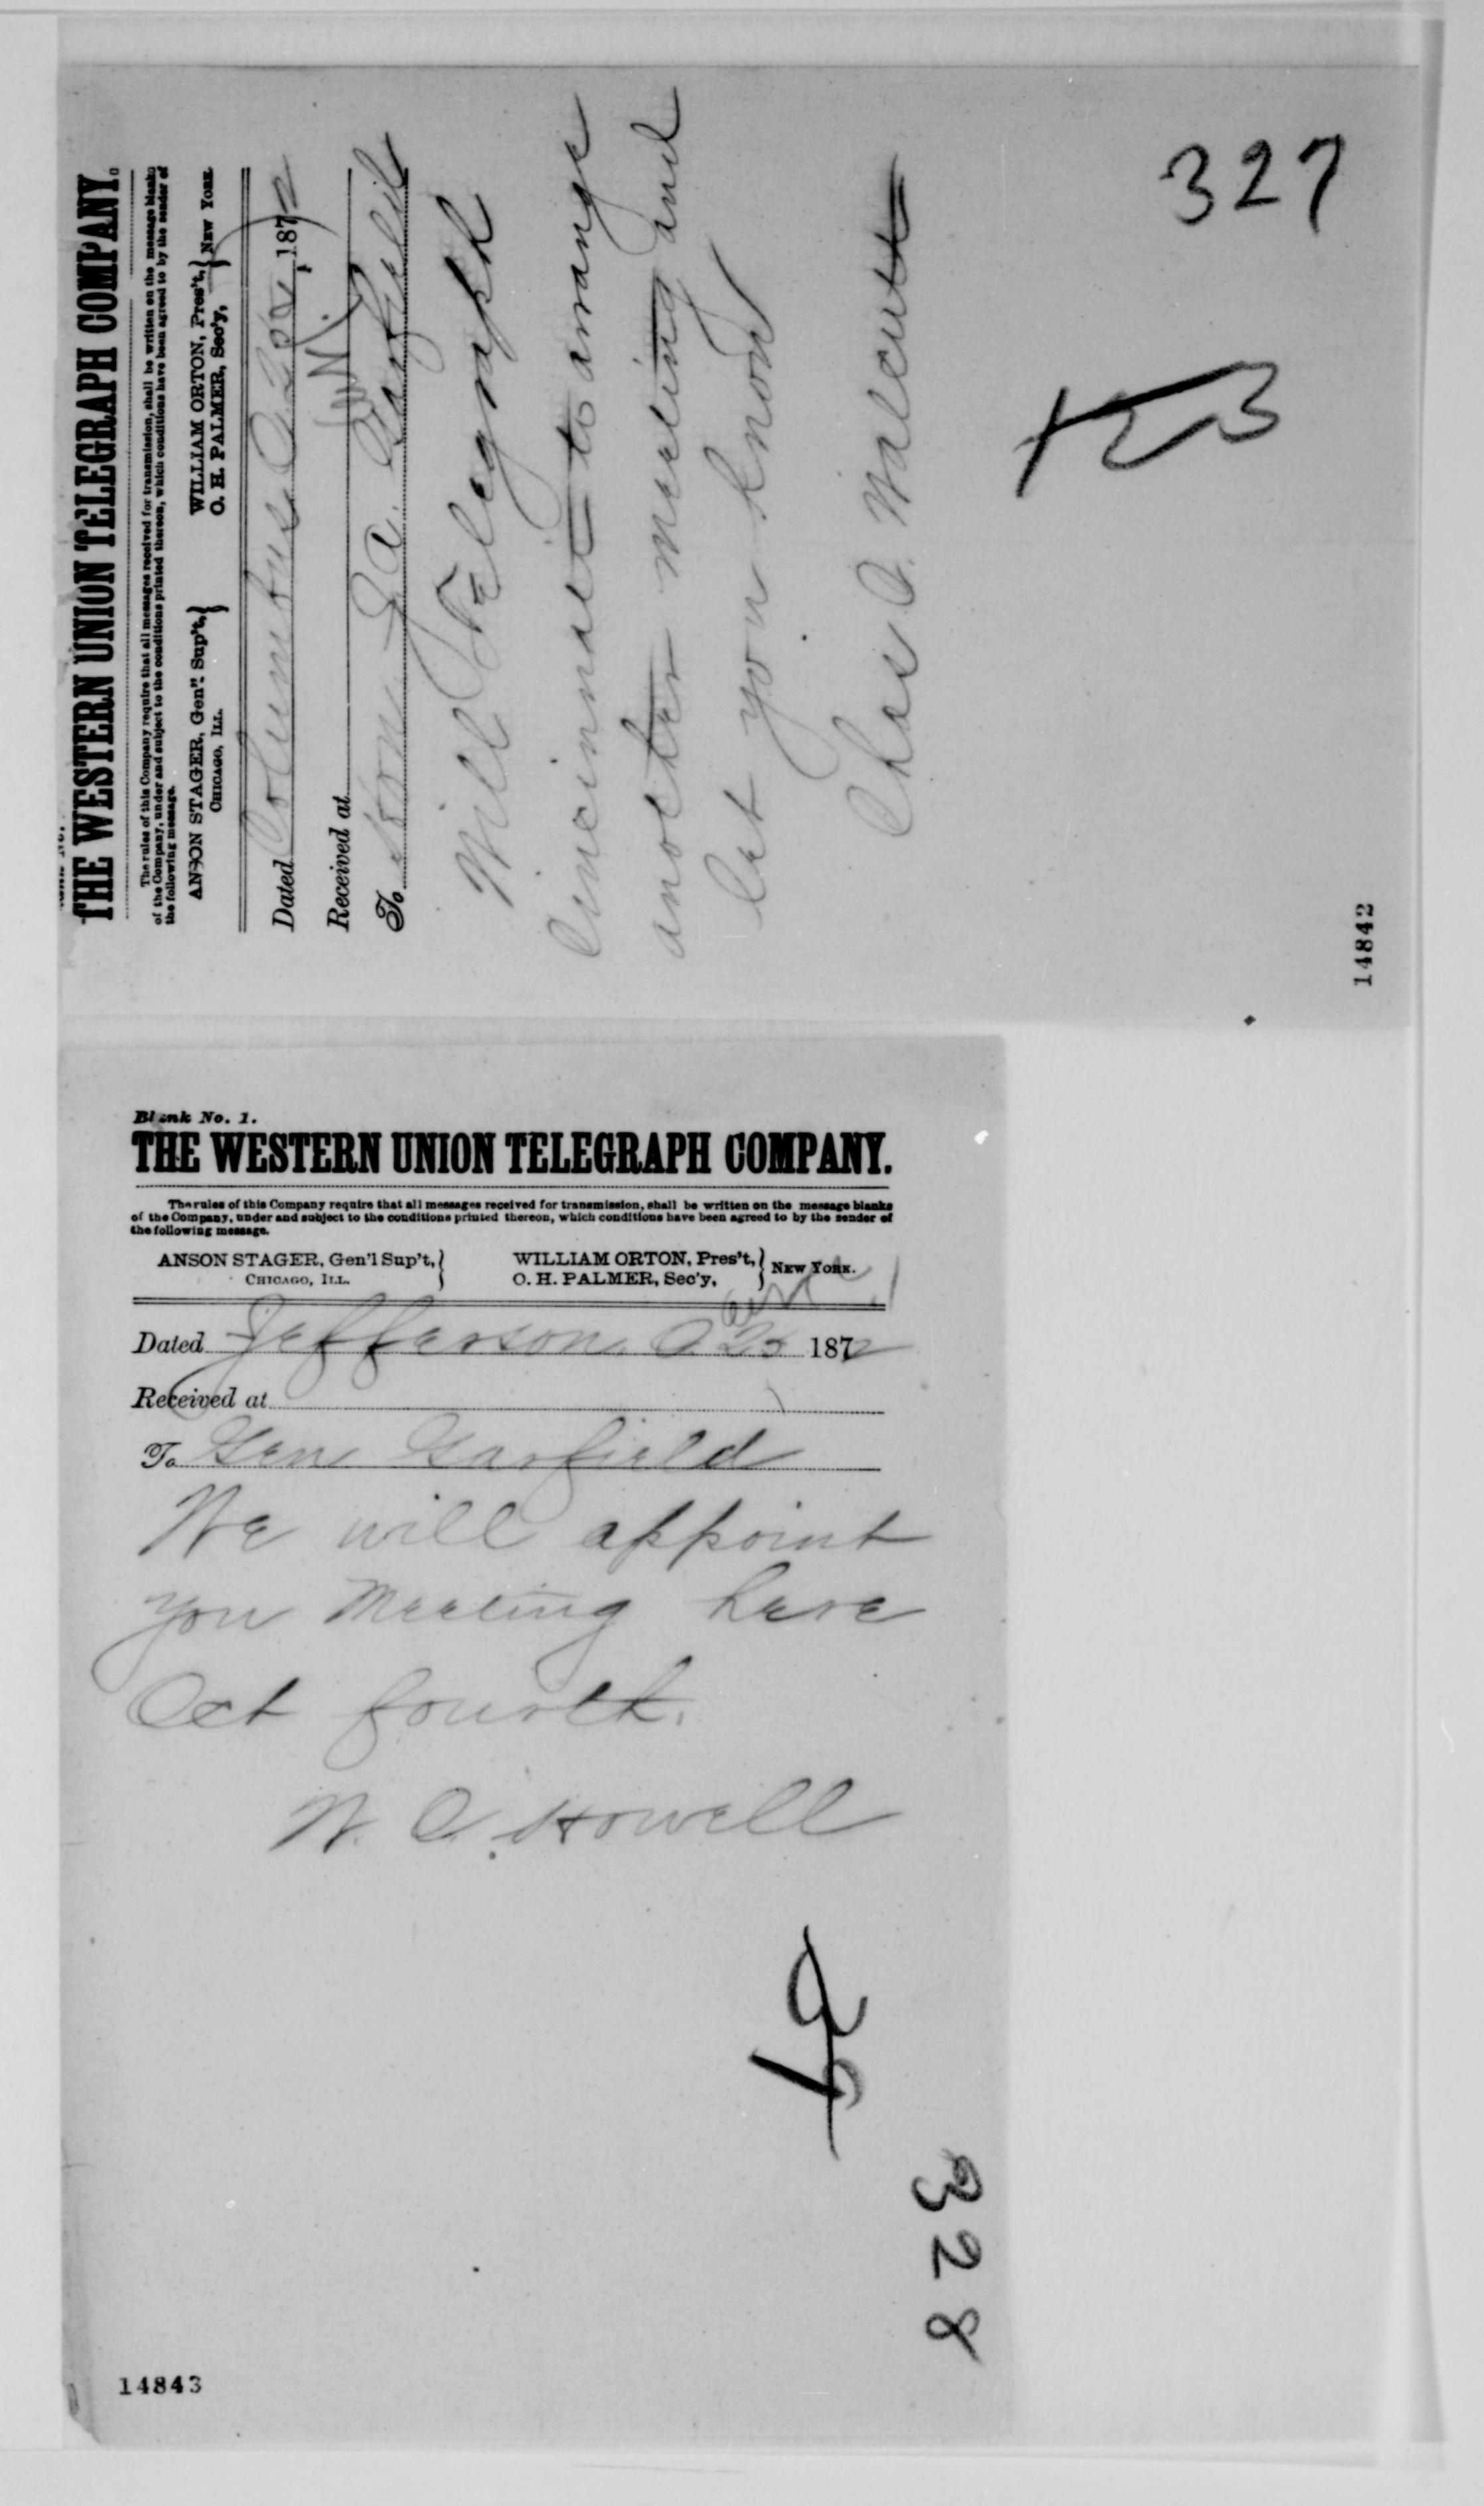 THE WESTERN UNION TELEGRAPH COMPANY.
The rules of this Company require that all messages received for transmission, shall be written on the message blanks
of the Company, under and subject to the conditions printed thereon, which conditions have been agreed to by the sender of
the following message.
ANSON STAGER, Gen'l Sup't, WILLIAM ORTON, Pres't, NEW YORK.
CHICAGO, ILL. O. H. PALMER, Sec'y,
Dated Columbus O 1872
Received at
To Hon J. A. Garfield
Will Telegraph
Cincinnati to arrange
another meeting and
let you know
Chas C. Walcutt
327
14842
Blank No. 1.
THE WESTERN UNION TELEGRAPH COMPANY.
The rules of this Company require that all messages received for transmission, shall be written on the message blanks
of the Company, under and subject to the conditions printed thereon, which conditions have been agreed to by the sender of
the following message.
ANSON STAGER, Gen'l Sup't, WILLIAM ORTON, Pres't, NEW YORK.
CHICAGO, ILL. O. H. PALMER, Sec'y,
Dated Jefferson O 25 1872
Received at
To Gen Garfield
We will appoint
you Meeting here
Oct fourth.
W. C. Howell
328
14843